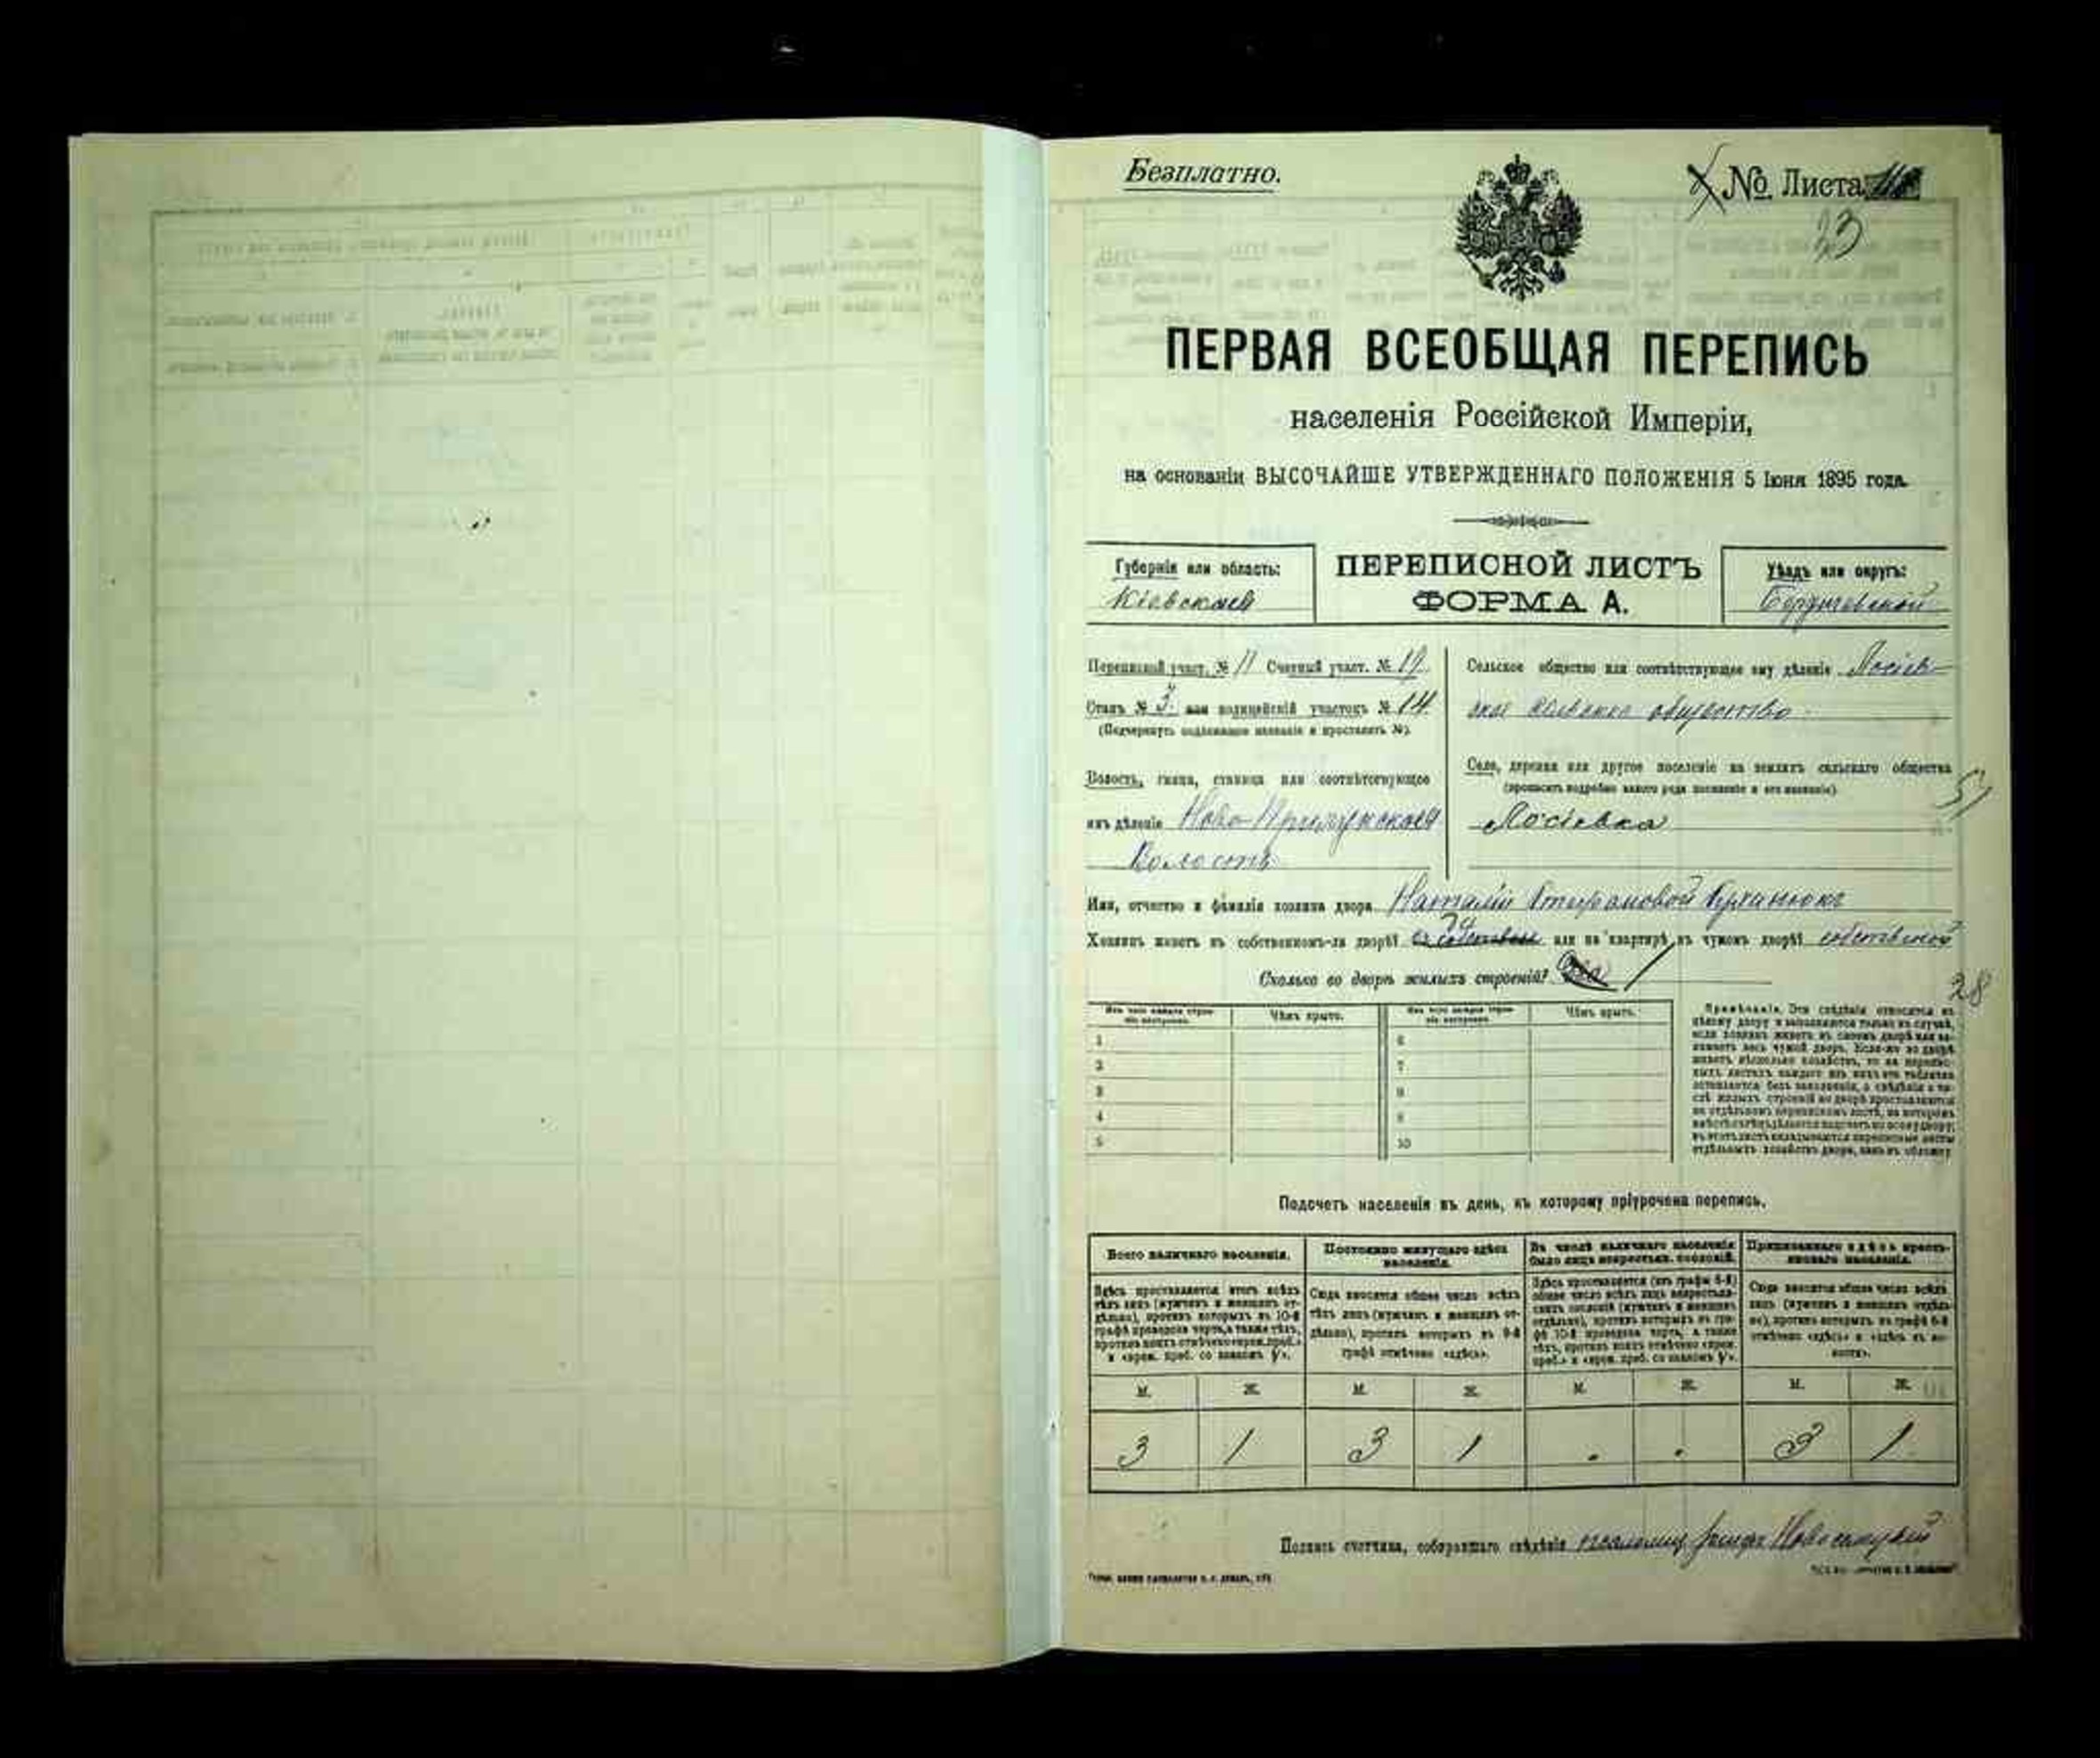 Безплатно.
№ Листа
23
ПЕРВАЯ ВСЕОБЩАЯ ПЕРЕПИСЬ
населенія Россійской Имперіи,
на основаніи ВЫСОЧАЙШЕ УТВЕРЖДЕННАГО ПОЛОЖЕНІЯ 5 Іюня 1895 года.
Губернія или область:
Кіевская
ПЕРЕПИСНОЙ ЛИСТЪ
ФОРМА А.
Уѣздъ или округъ:
Бердичевскій
Переписной участ. № 11 Счетный участ. № 19
Станъ № 3 или полицейскій участокъ № 14
(Подчеркнуть надлежащее названіе и проставить №).
Волость, гмина, станица или соотвѣтствующее
имъ дѣленіе Ново-Прилукская
Волость
Сельское общество или соотвѣтствующее ему дѣленіе Лосіев-
ское сельское общество
Село, деревня или другое поселеніе на земляхъ сельскаго общества
(прописать подробно какого рода поселеніе и его названіе)
Лосіевка
51
Имя, отчество и фамилія хозяина двора Наталіи Стефановой
Хозяинъ живетъ въ собственномъ-ли дворѣ? или на квартирѣ въ чужомъ дворѣ?
Сколько во дворѣ жилыхъ строеній?
28
Изъ чего каждое строе-
ніе построено.
Чѣмъ крыто.
Изъ чего каждое строе-
ніе построено.
Чѣмъ крыто.
1 6
2 7
3 8
4 9
5 10
Примѣчаніе. Эти свѣдѣнія относятся къ
цѣлому двору и заполняются только въ случаѣ,
если хозяинъ живетъ въ своемъ дворѣ или за-
нимаетъ весь чужой дворъ. Если-же во дворѣ
живетъ нѣсколько хозяйствъ, то на перепис-
ныхъ листахъ каждаго изъ нихъ эта табличка
оставляется безъ заполненія, а свѣдѣнія о чи-
слѣ жилыхъ строеній во дворѣ проставляются
на отдѣльномъ переписномъ листѣ, на которомъ
въ этотъ листъ вкладываются переписные листы
отдѣльныхъ хозяйствъ двора, какъ въ обложку
Подсчетъ населенія въ день, къ которому пріурочена перепись.
Всего наличнаго населенія.
Здѣсь проставляется итогъ всѣхъ
тѣхъ лицъ (мужчинъ и женщинъ от-
дѣльно), противъ которыхъ въ 10-й
графѣ проведена черта, а также тѣхъ,
противъ коихъ отмѣчено «врем. преб.»
и «врем. преб. со знакомъ
Постоянно живущаго здѣсь
населенія.
Сюда вносится общее число всѣхъ
тѣхъ лицъ (мужчинъ и женщинъ от-
дѣльно), противъ которыхъ въ 9-й
графѣ отмѣчено «здѣсь».
Въ числѣ наличнаго населенія
было лицъ некрестьян. сословій.
Здѣсь проставляется (изъ графы 6-й)
общее число всѣхъ лицъ некрестьян-
скихъ сословій (мужчинъ и женщинъ
отдѣльно), противъ которыхъ въ гра-
фѣ 10-й проведена черта, а также
тѣхъ, противъ коихъ отмѣчено «врем.
преб.» и «врем. преб. со знакомъ
Приписаннаго здѣсь кресть-
янскаго населенія.
Сюда вносится общее число всѣхъ
лицъ (мужчинъ и женщинъ отдѣль-
но), противъ которыхъ въ графѣ 8-й
отмѣчено «здѣсь» и «здѣсь въ во-
лости».
М. Ж. М. Ж. М. Ж. М. Ж.
3 1 3 1 . . 3 1
Подпись счетчика, собиравшаго свѣдѣнія